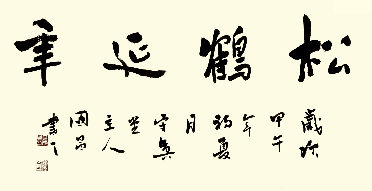 松鶴延年
歲次
甲午
年
初夏
月
守真
堂
主人
國昌
書